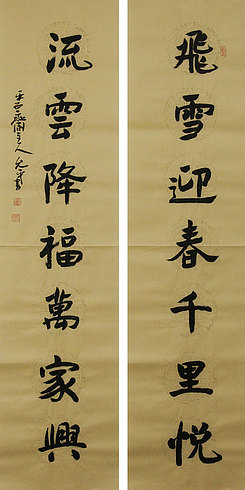 飛雪迎春千里悦
流雲降福萬家興